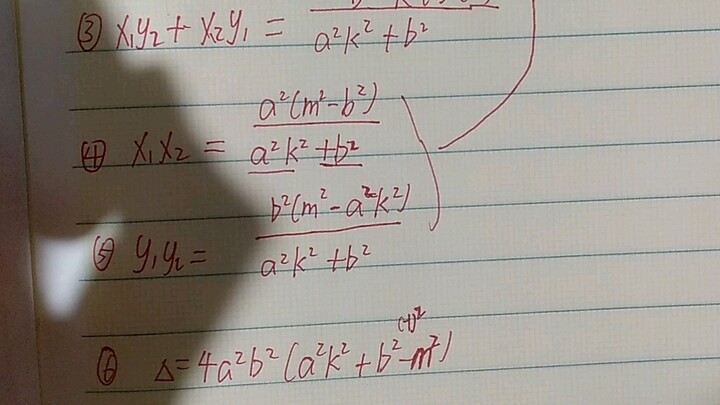 ③ x₁y₂ + x₂y₁ = / a²k² + b²
④ x₁x₂ = a²(m² - b²) / a²k² + b²
⑤ y₁y₂ = b²(m² - a²k²) / a²k² + b²
⑥ Δ = 4a²b² (a²k² + b² - m²)